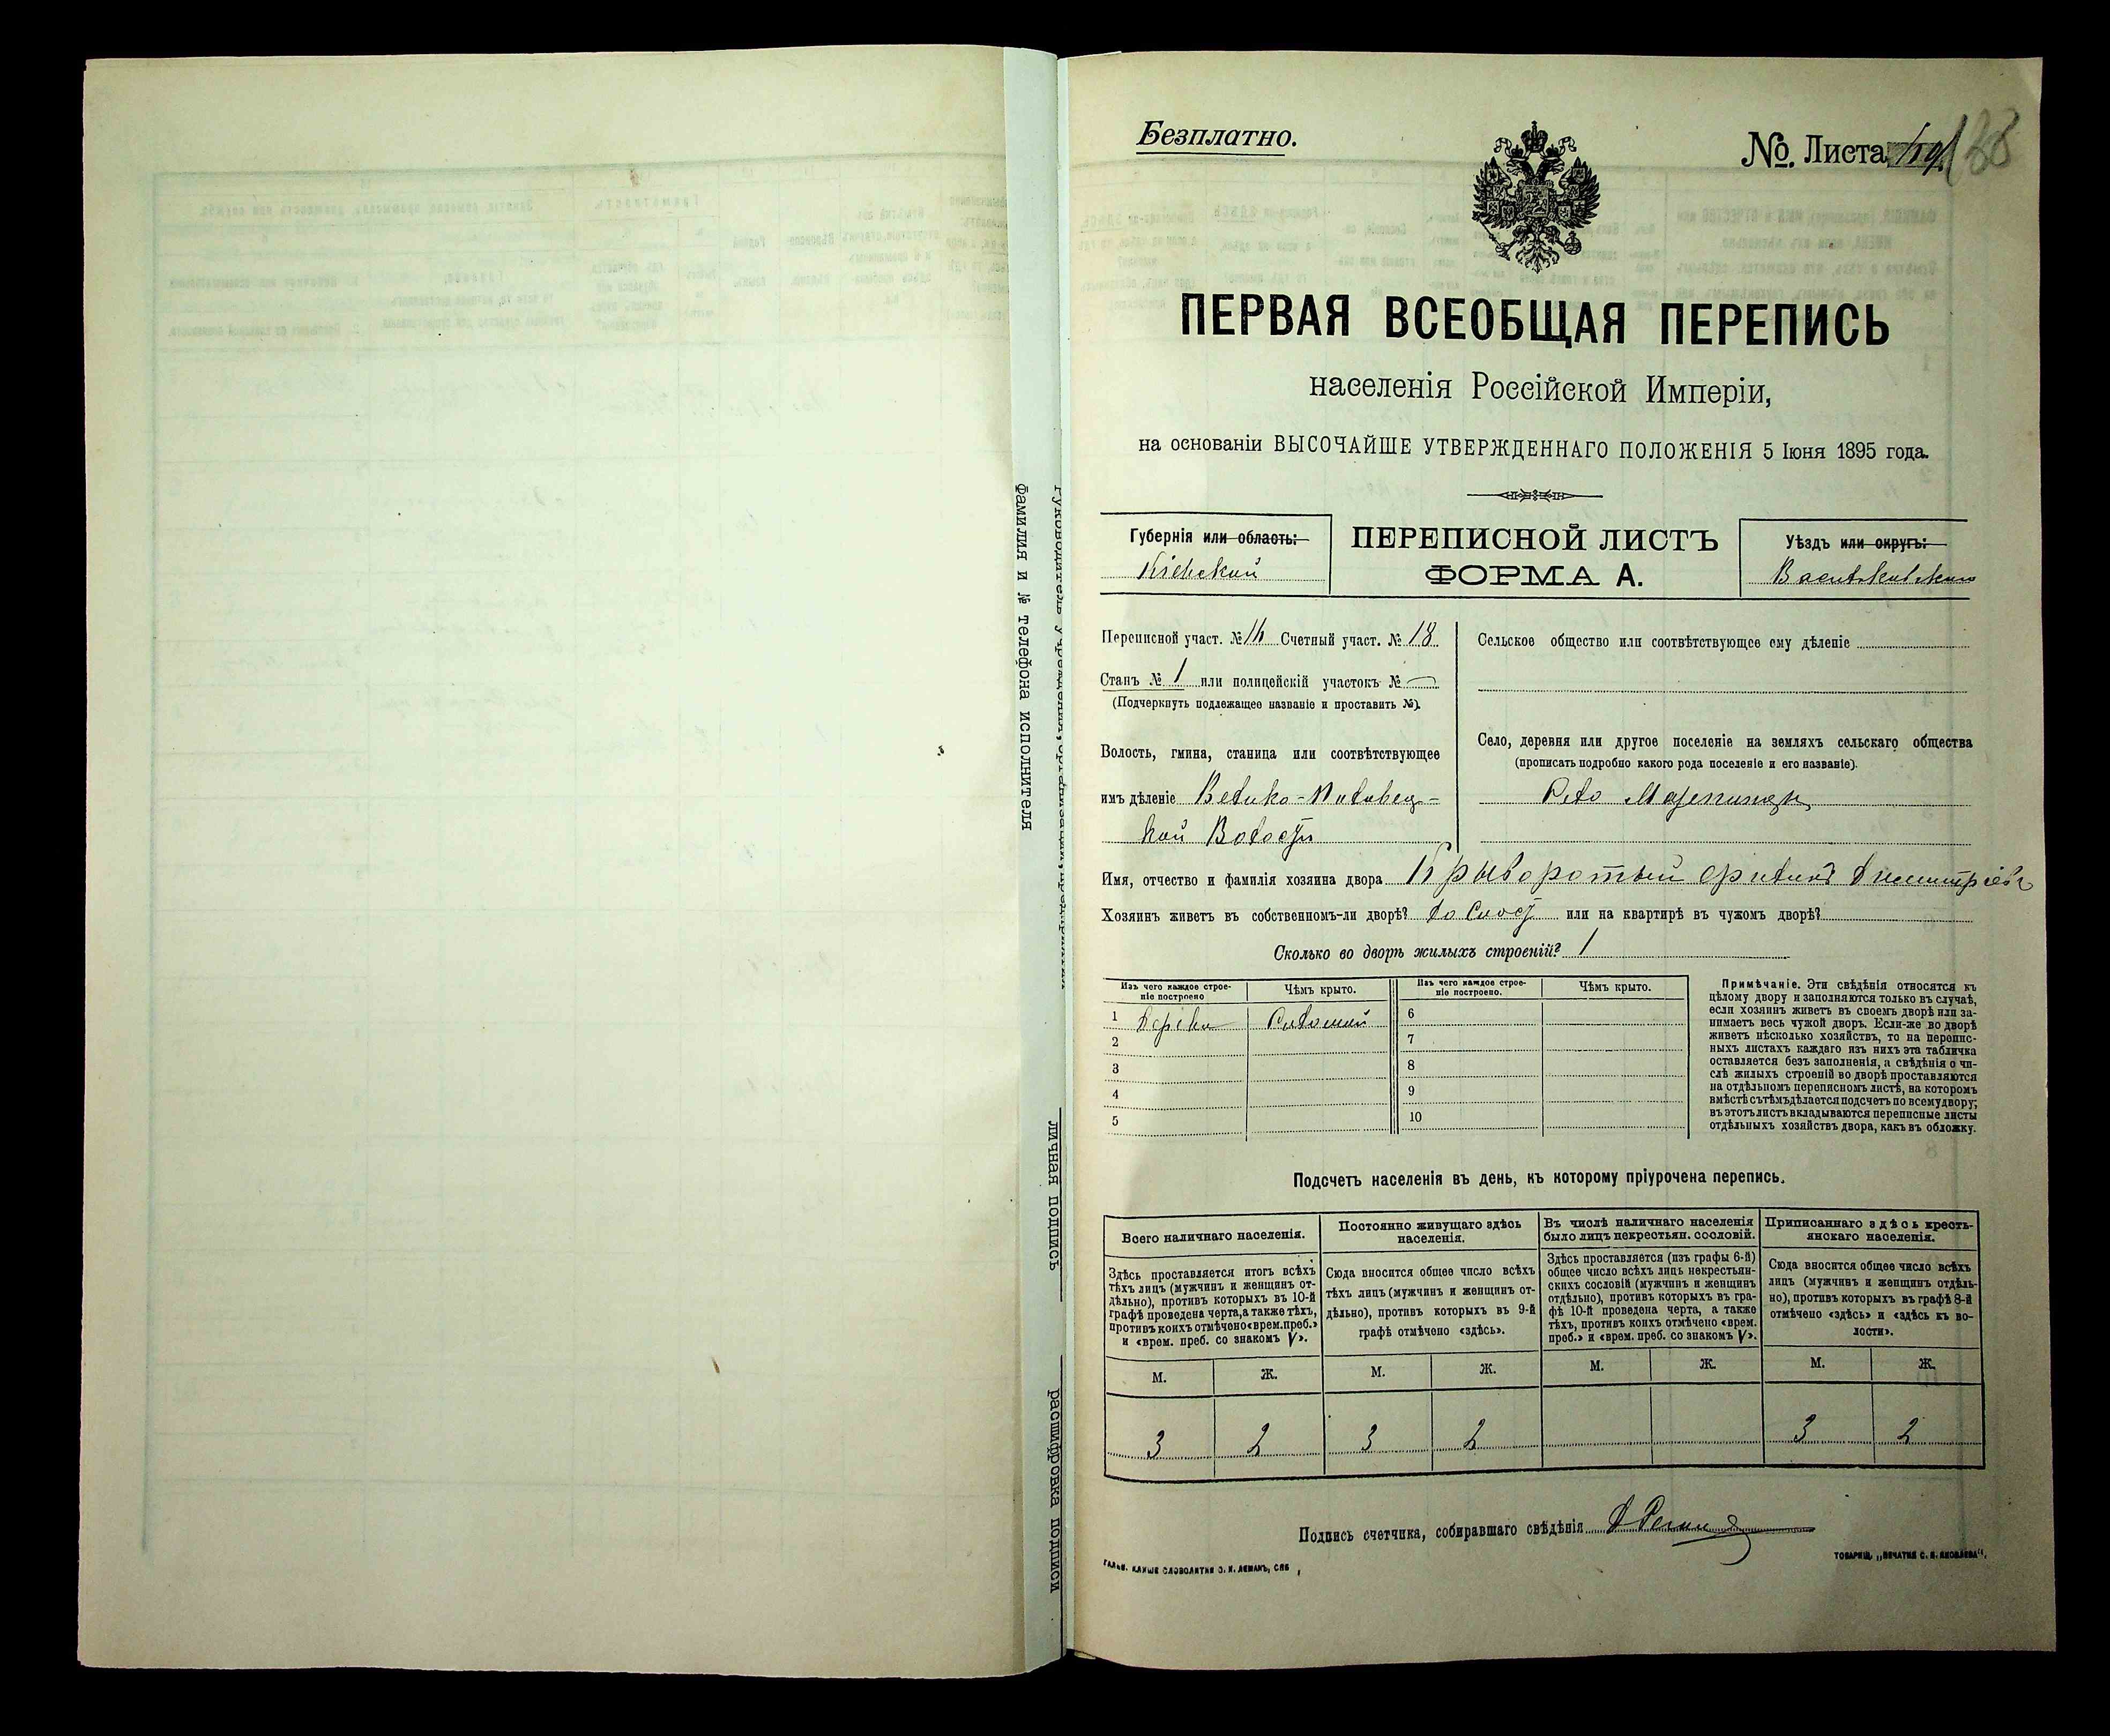 Безплатно.
№. Листа 188
ПЕРВАЯ ВСЕОБЩАЯ ПЕРЕПИСЬ
населенія Россійской Имперіи,
на основаніи ВЫСОЧАЙШЕ УТВЕРЖДЕННАГО ПОЛОЖЕНІЯ 5 Іюня 1895 года.
Губернія или область:
Кіевской
ПЕРЕПИСНОЙ ЛИСТЪ
ФОРМА А.
Уѣздъ или округъ:
Васильковскаго
Переписной участ. № 16 Счетный участ. № 18
Станъ № 1 или полицейскій участокъ № —
(Подчеркнуть подлежащее названіе и проставить №).
Волость, гмина, станица или соотвѣтствующее
имъ дѣленіе Велико-Половец-
кой Волости
Сельское общество или соотвѣтствующее ему дѣленіе
Село, деревня или другое поселеніе на земляхъ сельскаго общества
(прописать подробно какого рода поселеніе и его названіе).
Село
Имя, отчество и фамилія хозяина двора Крыворотый Филипъ Дмитріевъ
Хозяинъ живетъ въ собственномъ-ли дворѣ? или на квартирѣ въ чужомъ дворѣ?
Сколько во дворѣ жилыхъ строеній? 1
Изъ чего каждое строе-
ніе построено
Чѣмъ крыто.
Изъ чего каждое строе-
ніе построено.
Чѣмъ крыто.
1 Дерева Соломой
2
3
4
5
6
7
8
9
10
Примѣчаніе. Эти свѣдѣнія относятся къ
цѣлому двору и заполняются только въ случаѣ,
если хозяинъ живетъ въ своемъ дворѣ или за-
нимаетъ весь чужой дворъ. Если-же во дворѣ
живетъ нѣсколько хозяйствъ, то на перепис-
ныхъ листахъ каждаго изъ нихъ эта табличка
оставляется безъ заполненія, а свѣдѣнія о чи-
слѣ жилыхъ строеній во дворѣ проставляются
на отдѣльномъ переписномъ листѣ, на которомъ
вмѣстѣ съ тѣмъ дѣлается подсчетъ по всему двору;
въ этотъ листъ вкладываются переписные листы
отдѣльныхъ хозяйствъ двора, какъ въ обложку.
Подсчетъ населенія въ день, къ которому пріурочена перепись.
Всего наличнаго населенія.
Здѣсь проставляется итогъ всѣхъ
тѣхъ лицъ (мужчинъ и женщинъ от-
дѣльно), противъ которыхъ въ 10-й
графѣ проведена черта, а также тѣхъ,
противъ коихъ отмѣчено «врем. преб.»
и «врем. преб. со знакомъ V».
Постоянно живущаго здѣсь
населенія.
Сюда вносится общее число всѣхъ
тѣхъ лицъ (мужчинъ и женщинъ от-
дѣльно), противъ которыхъ въ 9-й
графѣ отмѣчено «здѣсь».
Въ числѣ наличнаго населенія
было лицъ некрестьян. сословій.
Здѣсь проставляется (изъ графы 6-й)
общее число всѣхъ лицъ некрестьян-
скихъ сословій (мужчинъ и женщинъ
отдѣльно), противъ которыхъ въ гра-
фѣ 10-й проведена черта, а также
тѣхъ, противъ коихъ отмѣчено «врем.
преб.» и «врем. преб. со знакомъ V».
Приписаннаго здѣсь кресть-
янскаго населенія.
Сюда вносится общее число всѣхъ
лицъ (мужчинъ и женщинъ отдѣль-
но), противъ которыхъ въ графѣ 8-й
отмѣчено «здѣсь» и «здѣсь къ во-
лости».
М. Ж. М. Ж. М. Ж. М. Ж.
3 2 3 2 3 2
Подпись счетчика, собиравшаго свѣдѣнія
ГАЛЬВ. КЛИШЕ СЛОВОЛИТНИ О. И. ЛЕМАНЪ, СПБ
ТОВАРИЩ. „ПЕЧАТНЯ С. П. ЯКОВЛЕВА“.
Фамилия и № телефона исполнителя
личная подпись
расшифровка подписи